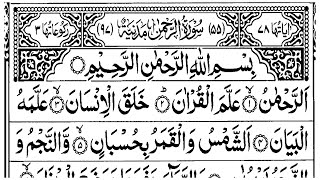 اٰیاتہا ۷۸ (۵۵) سُوْرَةُ الرَّحْمٰنِ مَدَنِيَّةٌ (۹۷) رکوعاتہا ۳
بِسْمِ اللهِ الرَّحْمٰنِ الرَّحِيْمِ
اَلرَّحْمٰنُ ۙ۱ عَلَّمَ الْقُرْاٰنَ ؕ۲ خَلَقَ الْاِنْسَانَ ۙ۳ عَلَّمَهُ
الْبَيَانَ ۴ اَلشَّمْسُ وَ الْقَمَرُ بِحُسْبَانٍ ۪۵ وَّ النَّجْمُ وَ